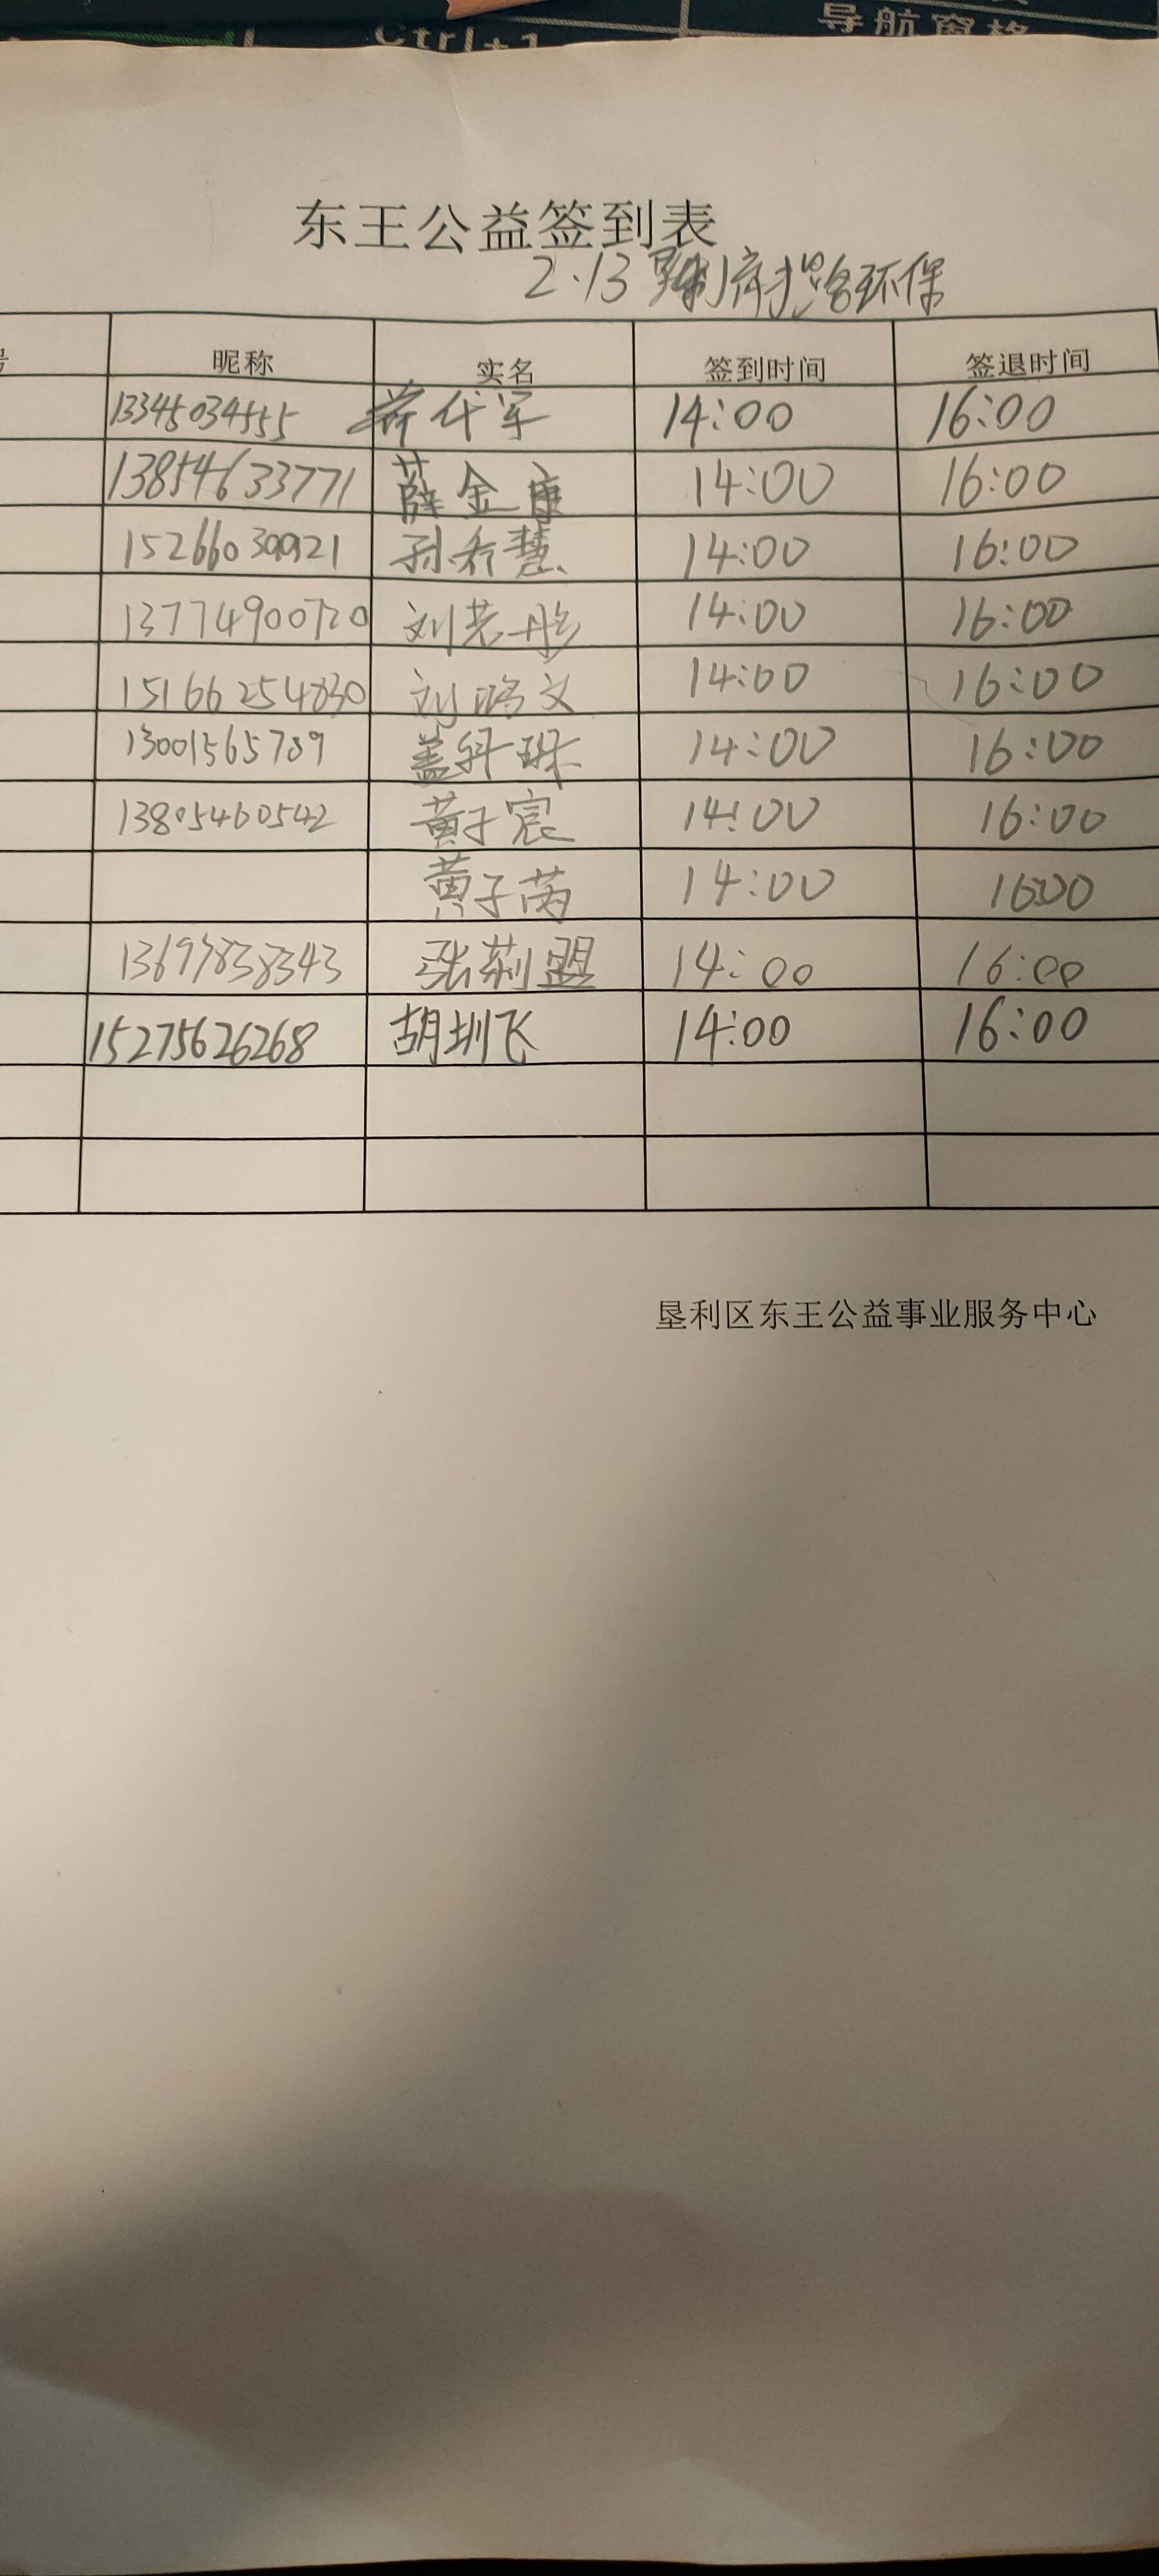 Ctrl+1
导航窗格
东王公益签到表
2.13 环保
号 昵称 实名 签到时间 签退时间
13345034555 代军 14:00 16:00
13854633771 薛金康 14:00 16:00
15266030921 孙希慧 14:00 16:00
13774900720 刘若彤 14:00 16:00
15166254830 刘鸿文 14:00 16:00
13001565789 盖轩琛 14:00 16:00
13805460542 黄子宸 14:00 16:00
黄子芮 14:00 16:00
13697838343 张荊盟 14:00 16:00
15275626268 胡圳飞 14:00 16:00
垦利区东王公益事业服务中心